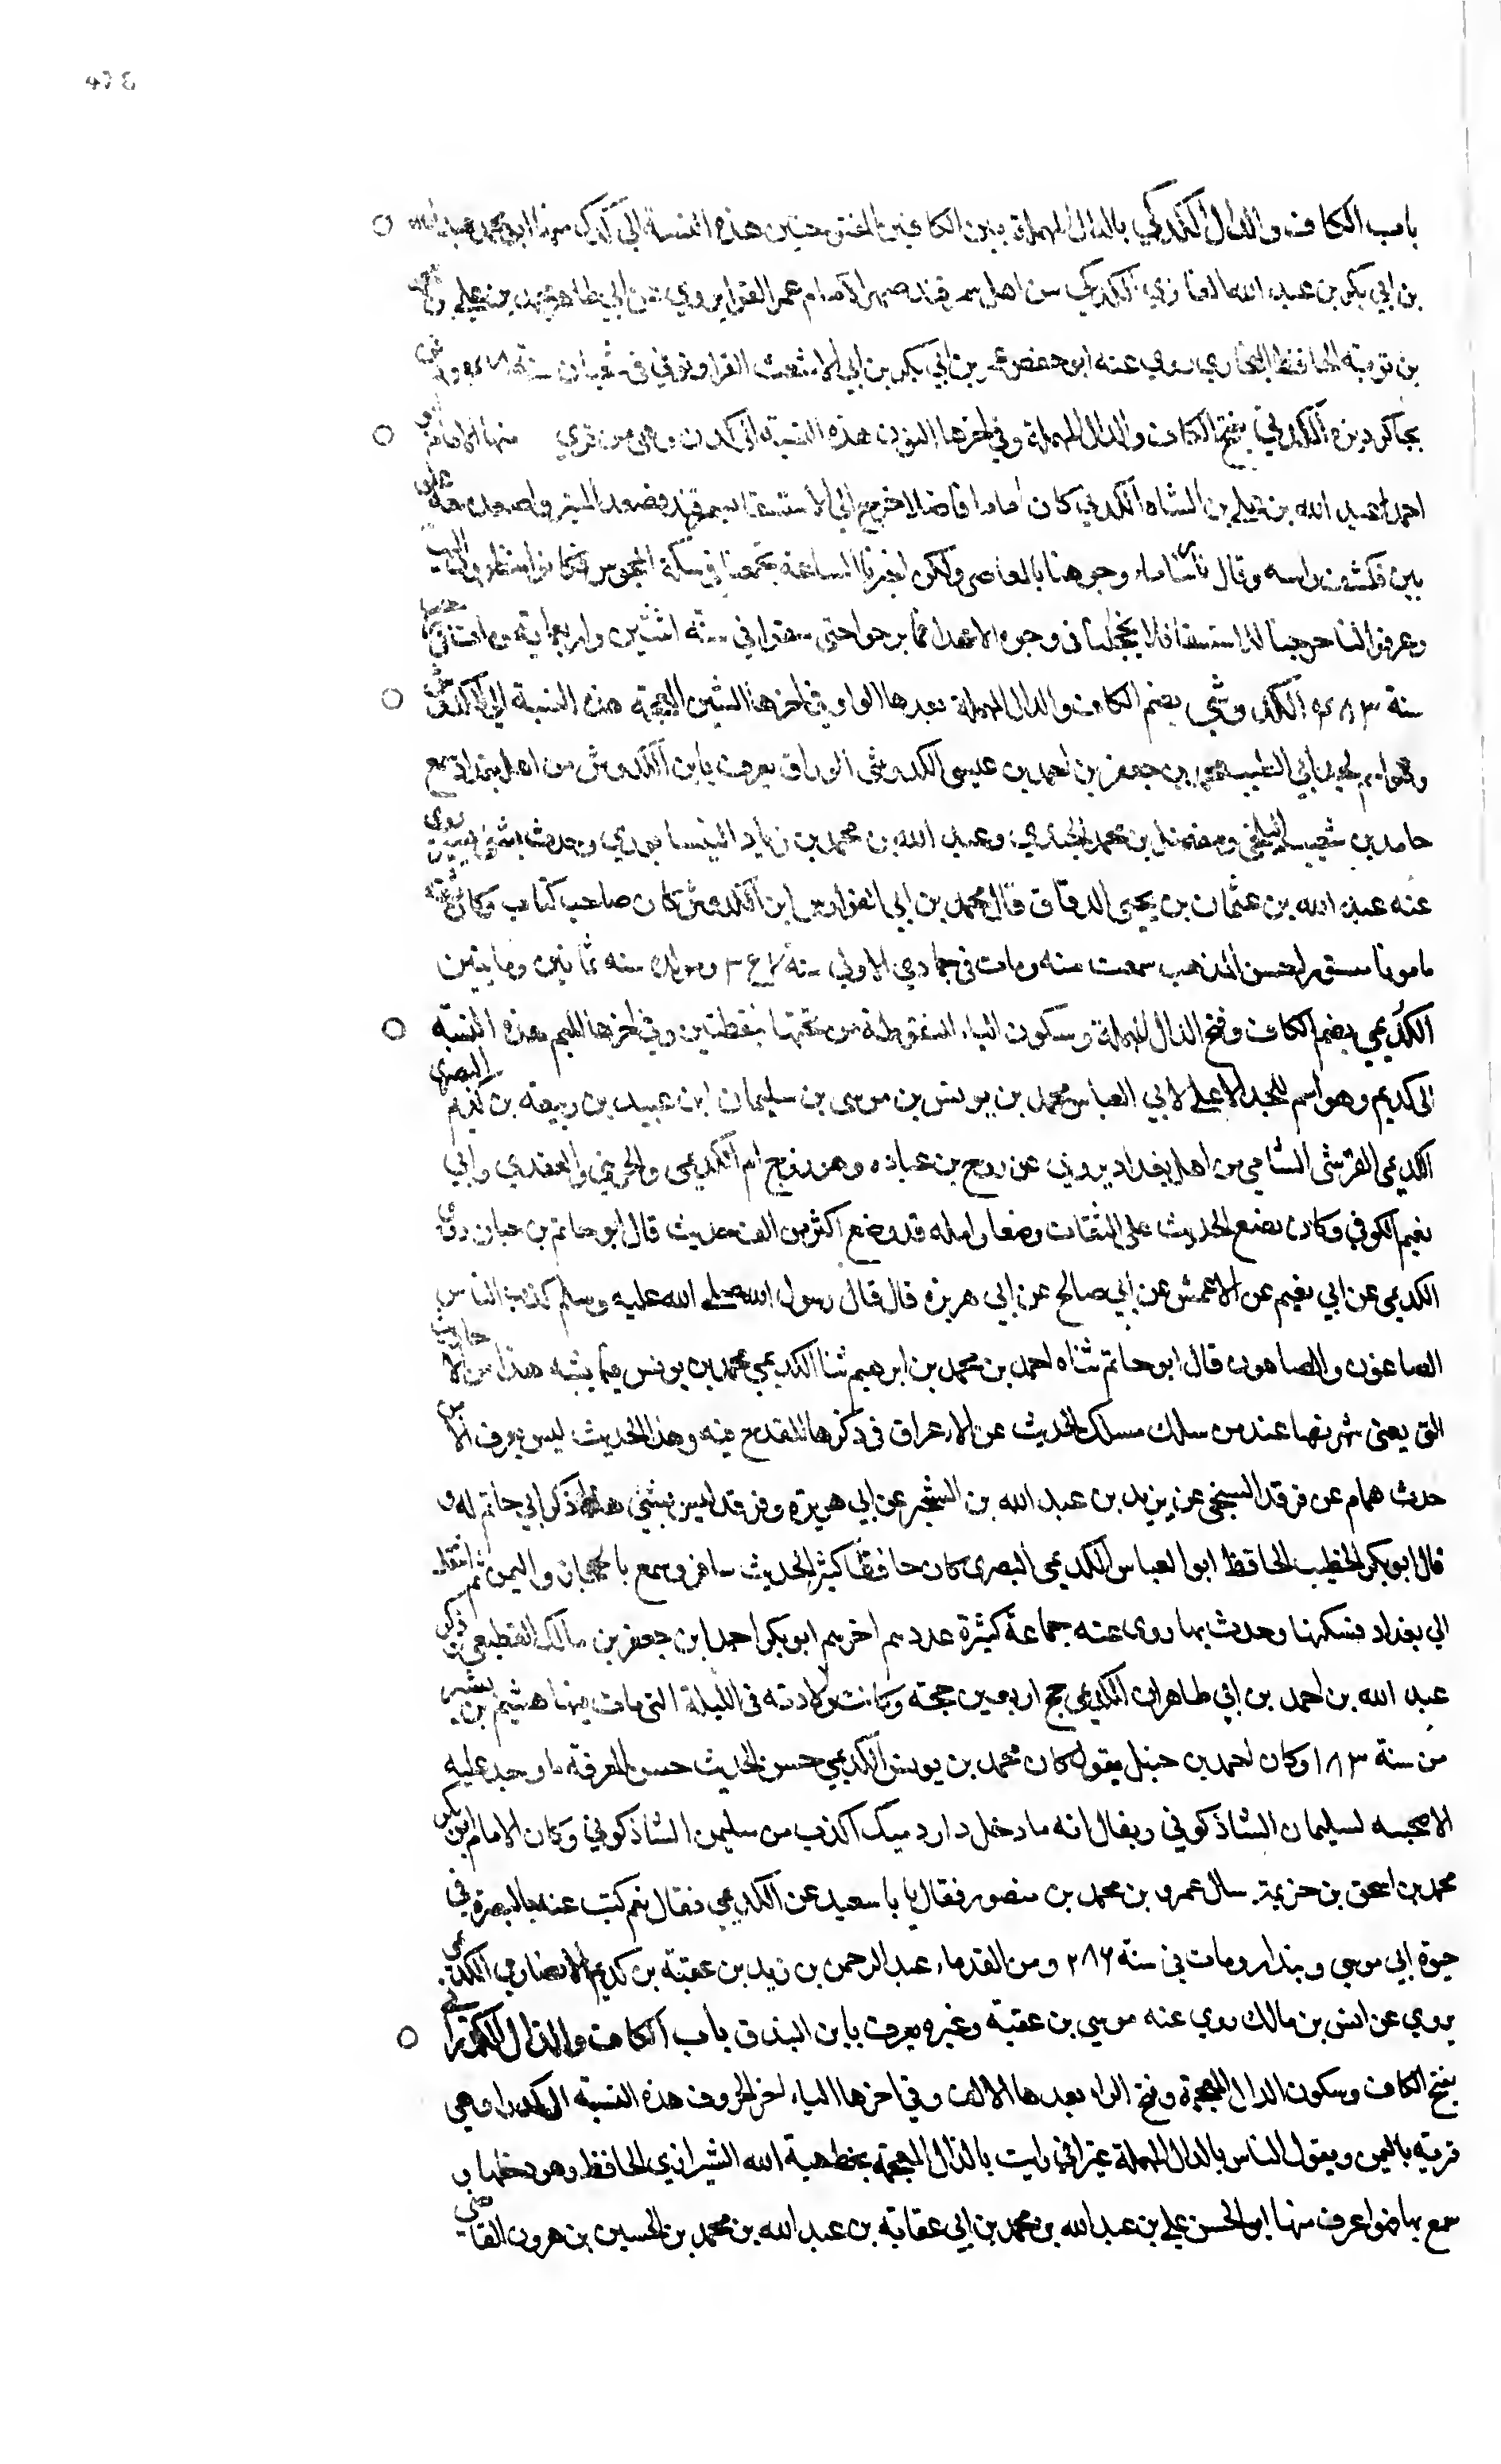 478
باب الكاف والدال الكدكي بالدال المهملة بين الكافين المفتوحتين هذه النسبة الى كدك منها ابو محمد عبد الله
بن ابي بكر بن عبد الله الغازي الكدكي من اهل سمرقند صهر الامام عمر المقرا يروي عن ابي طاهر محمد بن علي بن محمد
بن تربة الحافظ البخاري روى عنه ابو حفص عمر بن ابي بكر بن ابي الاشعث المقرا وتوفي في شعبان سنة
بجاكرديزه الكدني بفتح الكاف والدال المهملة وفي اخرها النون هذه النسبة الى كدن وهي من قري منها الامام
احمد عبد الله بن علي بن الشاه الكدني كان اماما فاضلا خرج الى الاستسقا بسمرقند فصعد المنبر واصعد معه
بين فكشف راسه وقال وجوهنا بالمعاصي ولكن اخبرنا الساعة بجمعنا في سكة المجوس
وعرفوا اننا خرجنا للاستسقا فلا تخجلنا في وجوه الاعدا فما برحوا حتى سقوا في سنة اثنتين واربعماية ومات في
سنة ٤٨٣ الكدوشي بضم الكاف والدال المهملة بعدها الواو وفي اخرها الشين المعجمة هذه النسبة الى الكدوش
وهو اسم لجد ابي الطيب محمد بن جعفر بن احمد بن عيسى الكدوشي الوراق يعرف بابن الكدوش من اهل بغداد سمع
حامد بن شعيب البلخي ومفضل بن محمد الجندي وعبد الله بن محمد بن زياد النيسابوري وحدث بشئ يسير روى
عنه عبد الله بن عثمان بن يحيى الدقاق قال محمد بن ابي الفوارس ابن الكدوش كان صاحب كتاب وكان ثقة
مامونا مستورا حسن المذهب سمعت منه ومات في جمادي الاولي سنة ومولده سنة ثمانين ومايتين
الكديمي بضم الكاف وفتح الدال المهملة وسكون الياء المنقوطة من تحتها بنقطتين وفي اخرها الميم هذه النسبة
الى كديم وهو اسم للجد الاعلى لابي العباس محمد بن يونس بن موسى بن سليمان ابن عبيد بن ربيعة بن كديم البصري
الكديمي القرشي السامي من اهل بغداد يروي عن روح بن عباده وهو زوج ام الكديمى والخريبي والعقدي وابي
نعيم الكوفي وكان يضع الحديث على الثقات وضعا ولعله قد وضع اكثر من الف حديث قال ابو حاتم بن حبان روى
الكديمى عن ابي نعيم عن الاعمش عن ابي صالح عن ابي هريرة قال قال رسول الله صلى الله عليه وسلم كذب الناس
الصاعون والصاهون قال ابو حاتم ثناه احمد بن محمد بن ابرهيم ثنا الكديمي محمد بن يونس فيما يشبه هذا من الاحاديث
التي يغنى شهرتها عند من سلك مسلك الحديث عن الاغراق في ذكرها للقدح فيه وهذا الحديث ليس يعرف الا من
حدث همام عن فرقد السبخي عن يزيد بن عبد الله بن الشخير عن ابي هريرة وفرقد ليس بشئ هكذا ذكر ابي حاتم له و
قال ابو بكر الخطيب الحافظ ابو العباس الكديمي البصرى كان حافظا كثير الحديث سافر وسمع بالحجاز واليمن ثم انتقل
الي بغداد فسكنها وحدث بها روى عنه جماعة كثيرة عددهم اخرهم ابو بكر احمد ابن جعفر بن مالك القطيعي ذكر
عبد الله بن احمد بن ابي طاهر ان الكديمي حج اربعين حجة وكانت ولادته في الليلة التي مات فيها هشيم بن بشير
من سنة ١٨٣ وكان احمد بن حنبل يقول كان محمد بن يونس الكديمي حسن الحديث حسن المعرفة ما وجد عليه
الا صحبه لسليمان الشاذكوني ويقال انه ما دخل دار دميك اكذب من سليمن الشاذكوني وكان الامام ابو بكر
محمد بن اسحق بن خزيمة سال عمرو بن محمد بن منصور فقال يا با سعيد عن الكديمي فقال نعم كتب عنه بالبصرة في
حيوة ابي موسى وبندار ومات في سنة ٢٨٦ ومن القدماء عبد الرحمن بن زيد بن عقبة بن كديم الانصاري الكديمي
يروي عن انس بن مالك روي عنه موسي بن عقبة وغيره يعرف بابن البندق باب الكاف والذال الكذراي
بفتح الكاف وسكون الذال المعجمة وفتح الراء بعدها الالف وفي اخرها الياء اخر الحروف هذه النسبة الى كدرا وهي
قرية باليمن ويقول الناس بالدال المهملة غير اني رايت بالذال المعجمة بخط هبة الله الشيرازي الحافظ وهو دخلها و
سمع بها ضوا عرف منها ابو الحسن علي بن عبد الله بن محمد بن ابي عقامة بن عبد الله بن محمد بن الحسين بن هرون القاضي